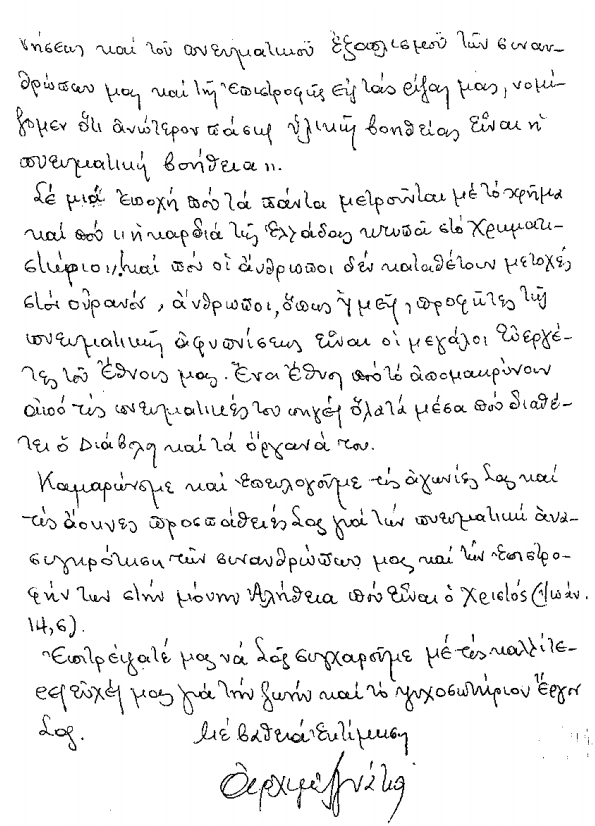 νήσεως καὶ τοῦ πνευματικοῦ ἐξοπλισμοῦ τῶν συναν-
θρώπων μας καὶ τῆς ἐπιστροφῆς εἰς τὰς ρίζας μας, νομί-
ζομεν ὅτι ἀνώτερον πάσης ὑλικῆς βοηθείας εἶναι ἡ
πνευματικὴ βοήθεια".
Σὲ μιὰ ἐποχὴ ποὺ τὰ πάντα μετροῦνται μὲ τὸ χρῆμα
καὶ ποὺ "ἡ καρδιὰ τῆς Ἑλλάδας κτυπᾶ στὸ Χρηματι-
στήριο"! καὶ ποὺ οἱ ἄνθρωποι δὲν καταθέτουν μετοχές
στὸν οὐρανόν, ἄνθρωποι, ὅπως ἡμεῖς, προφῆτες τῆς
πνευματικῆς ἀφυπνίσεως εἶναι οἱ μεγάλοι εὐεργέ-
τες τοῦ Ἔθνους μας. Ἕνα Ἔθνος ποὺ τὸ ἀπομακρύνουν
ἀπὸ τὶς πνευματικές του πηγὲς ὅλα τὰ μέσα ποὺ διαθέ-
τει ὁ Διάβολος καὶ τὰ ὄργανά του.
Καμαρώνομε καὶ εὐλογοῦμε τὶς ἀγωνίες Σας καὶ
τὶς ἄοκνες προσπάθειές Σας γιὰ τὴν πνευματικὴ ἀνα-
συγκρότηση τῶν συνανθρώπων μας καὶ τὴν ἐπιστρο-
φήν των στὴν μόνην Ἀλήθεια ποὺ εἶναι ὁ Χριστός (Ἰωάν.
14,6).
Ἐπιτρέψατέ μας νὰ Σᾶς συγχαροῦμε μὲ τὶς καλλίτε-
ρες εὐχές μας γιὰ τὴν ζωὴν καὶ τὸ ψυχοσωτήριον ἔργον
Σας.
Μὲ βαθειὰ ἐκτίμηση